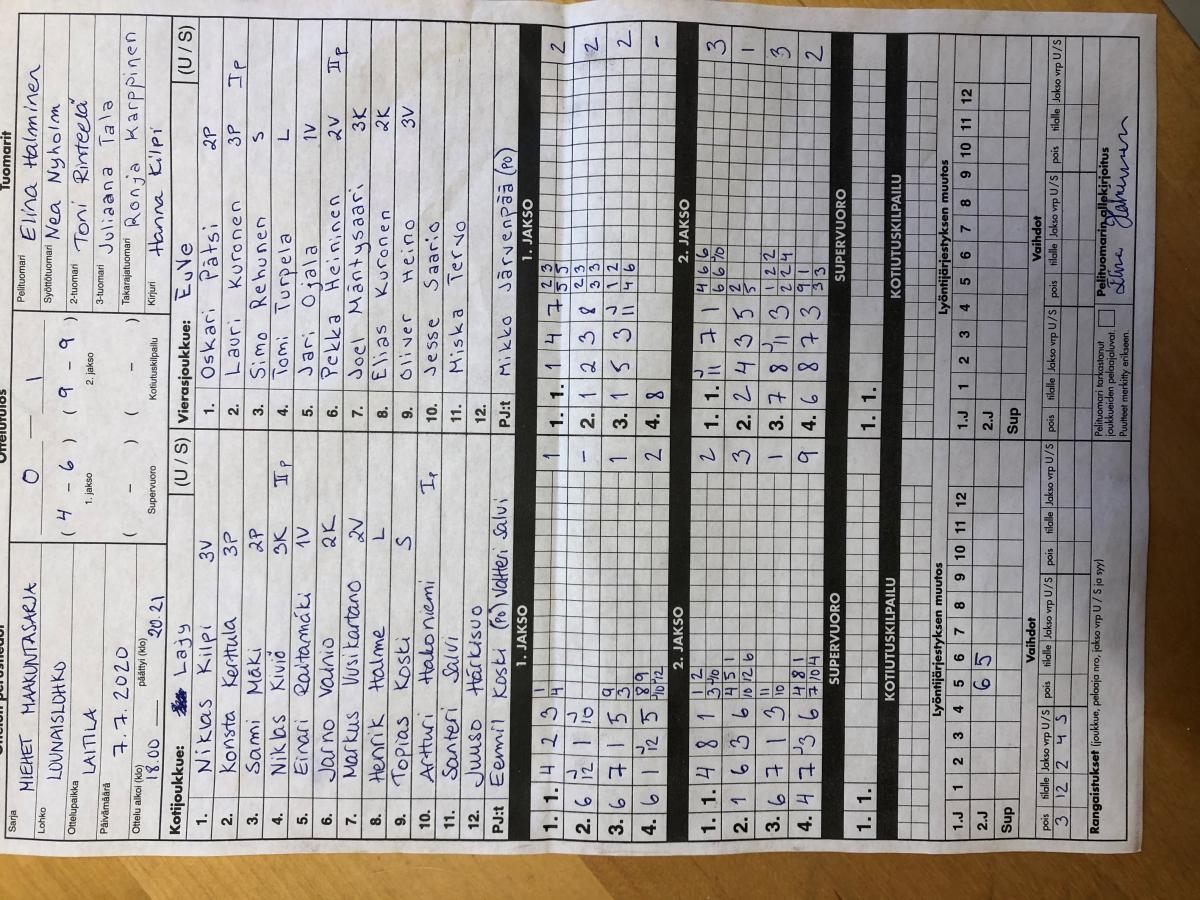 Sarja
MIEHET MAAKUNTASARJA
Lohko
LOUNAISLOHKO
Ottelupaikka
LAITILA
Päivämäärä
7.7.2020
Ottelu alkoi (klo) päättyi (klo)
18.00 — 20.21
0 — 1
( 4 - 6 ) ( 9 - 9 )
1. jakso 2. jakso
( - ) ( - )
Supervuoro Kotiutuskilpailu
Tuomarit
Pelituomari Elina Halminen
Syöttötuomari Nea Nyholm
2-tuomari Toni Rinteelä
3-tuomari Juliaana Tala
Takarajatuomari Ronja Karppinen
Kirjuri Hanna Kilpi
Kotijoukkue: Lajy (U / S)
1. Niklas Kilpi 3V
2. Konsta Kerttula 3P
3. Sami Mäki 2P
4. Niklas Kiviö 3K IIp
5. Einari Raitamäki 1V
6. Jarno Vainio 2K
7. Markus Uusikartano 2V
8. Henrik Halme L
9. Topias Koski S
10. Artturi Hakoniemi Ip
11. Santeri Salvi
12. Juuso Härkisuo
PJ:t Eemil Koski (PO) Valtteri Salvi
Vierasjoukkue: EuVe (U / S)
1. Oskari Pätsi 2P
2. Lauri Kuronen 3P Ip
3. Simo Rehunen S
4. Tomi Turpela L
5. Jari Ojala 1V
6. Pekka Heininen 2V IIp
7. Joel Mäntysaari 3K
8. Elias Kuronen 2K
9. Oliver Heino 3V
10. Jesse Saario
11. Miska Tervo
12.
PJ:t Mikko Järvenpää (PO)
1. JAKSO
1. 1. 4 2 3 1 4 1
2. 6 12 1 10 -
3. 6 7 1 5 9 3 1
4. 6 1 12 5 8 9 10 12 2
1. JAKSO
1. 1. 1 4 7 2 3 5 5 2
2. 1 2 3 8 2 3 3 3 2
3. 1 5 3 11 1 2 4 6 2
4. 8 -
2. JAKSO
1. 1. 4 8 1 1 2 3 10 2
2. 1 6 3 6 4 5 1 10 12 6 3
3. 6 7 1 3 11 10 1
4. 4 7 3 6 4 8 1 7 10 4 9
2. JAKSO
1. 1. 11 7 1 4 6 6 6 6 10 3
2. 2 4 3 5 2 5 1
3. 7 8 11 3 1 2 2 2 2 4 3
4. 6 8 7 3 9 1 3 3 2
SUPERVUORO
1. 1.
SUPERVUORO
1. 1.
KOTIUTUSKILPAILU
KOTIUTUSKILPAILU
Lyöntijärjestyksen muutos
1.J 1 2 3 4 5 6 7 8 9 10 11 12
2.J 6 5
Sup
Lyöntijärjestyksen muutos
1.J 1 2 3 4 5 6 7 8 9 10 11 12
2.J
Sup
Vaihdot
pois tilalle Jakso vrp U / S pois tilalle Jakso vrp U / S pois tilalle Jakso vrp U / S
3 12 2 4 S
Vaihdot
pois tilalle Jakso vrp U / S pois tilalle Jakso vrp U / S pois tilalle Jakso vrp U / S
Rangaistukset (joukkue, pelaaja nro, jakso vrp U / S ja syy)
Pelituomari tarkastanut
joukkueiden pelaajaluvat.
Puutteet merkitty erikseen.
Pelituomarin allekirjoitus
Elina Halminen